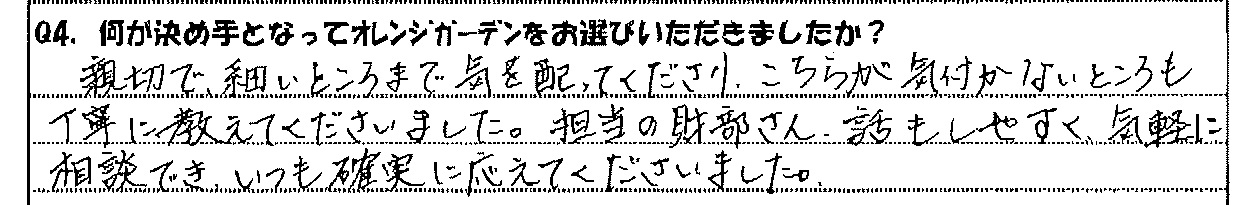 Q4. 何が決め手となってオレンジガーデンをお選びいただきましたか？
親切で、細いところまで気を配ってくださり、こちらが気付かないところも
丁寧に教えてくださいました。担当の財部さん、話もしやすく、気軽に
相談でき、いつも確実に応えてくださいました。